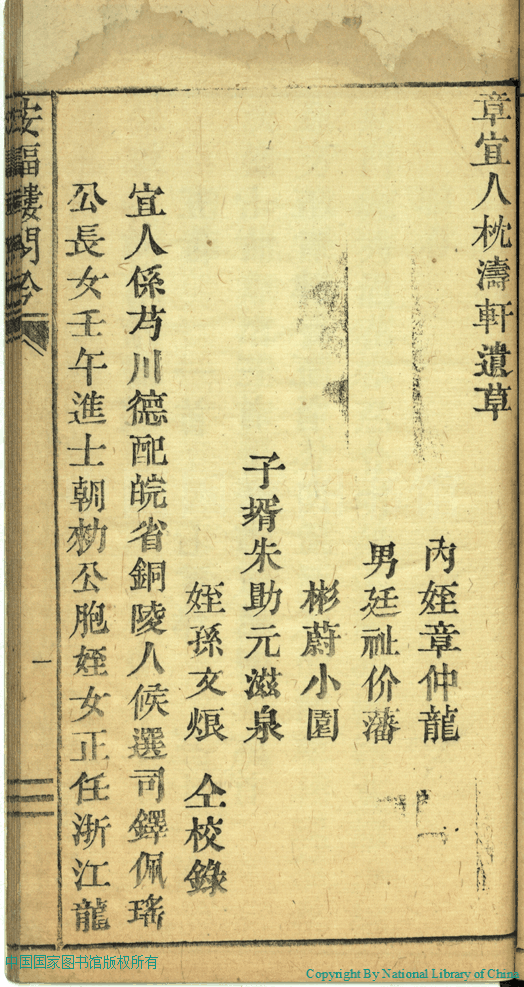 章宜人枕濤軒遺草
內姪章仲龍
男廷祉价藩
彬蔚小園
子壻朱助元滋泉
姪孫文烺 仝校錄
宜人係芀川德配皖省銅陵人候選司鐸佩瑤
公長女壬午進士朝勑公胞姪女正任浙江龍
一
中国国家图书馆版权所有
Copyright By National Library of China